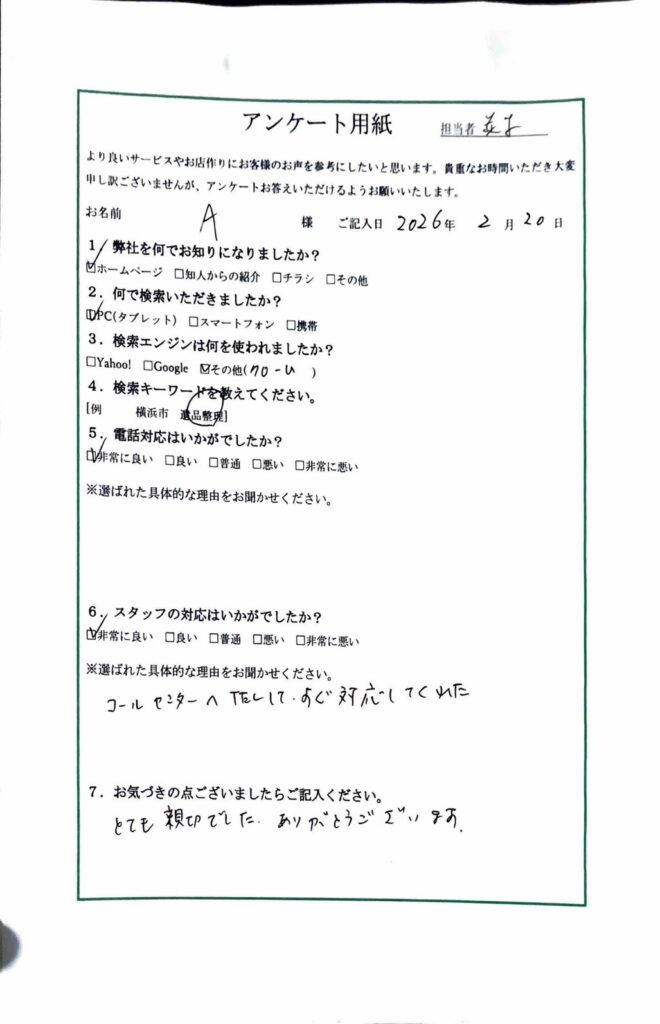 アンケート用紙
担当者
より良いサービスやお店作りにお客様のお声を参考にしたいと思います。貴重なお時間いただき大変
申し訳ございませんが、アンケートお答えいただけるようお願いいたします。
お名前 A 様 ご記入日 2026年 2月 20日
1．弊社を何でお知りになりましたか？
☑ホームページ □知人からの紹介 □チラシ □その他
2．何で検索いただきましたか？
☑PC(タブレット) □スマートフォン □携帯
3．検索エンジンは何を使われましたか？
□Yahoo! □Google ☑その他( )
4．検索キーワードを教えてください。
[例 横浜市 遺品整理]
5．電話対応はいかがでしたか？
☑非常に良い □良い □普通 □悪い □非常に悪い
※選ばれた具体的な理由をお聞かせください。
6．スタッフの対応はいかがでしたか？
☑非常に良い □良い □普通 □悪い □非常に悪い
※選ばれた具体的な理由をお聞かせください。
コールセンターへ すぐ対応してくれた
7．お気づきの点ございましたらご記入ください。
とても親切でした。ありがとうございます。